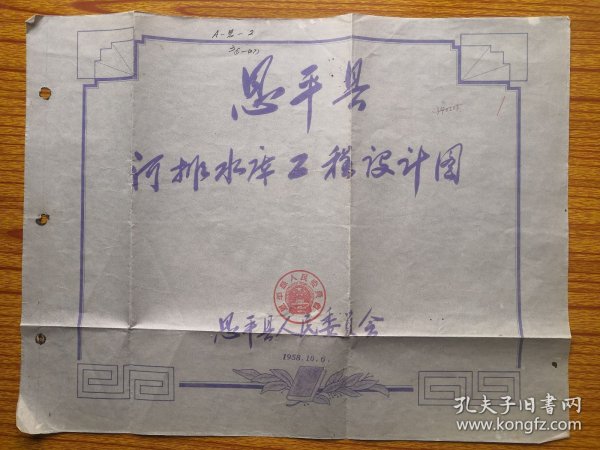 A-恩-2
恩平县
河排水库工程设计图
恩平县人民委员会
1958.10.6.
孔夫子旧书网
www.kongfz.com